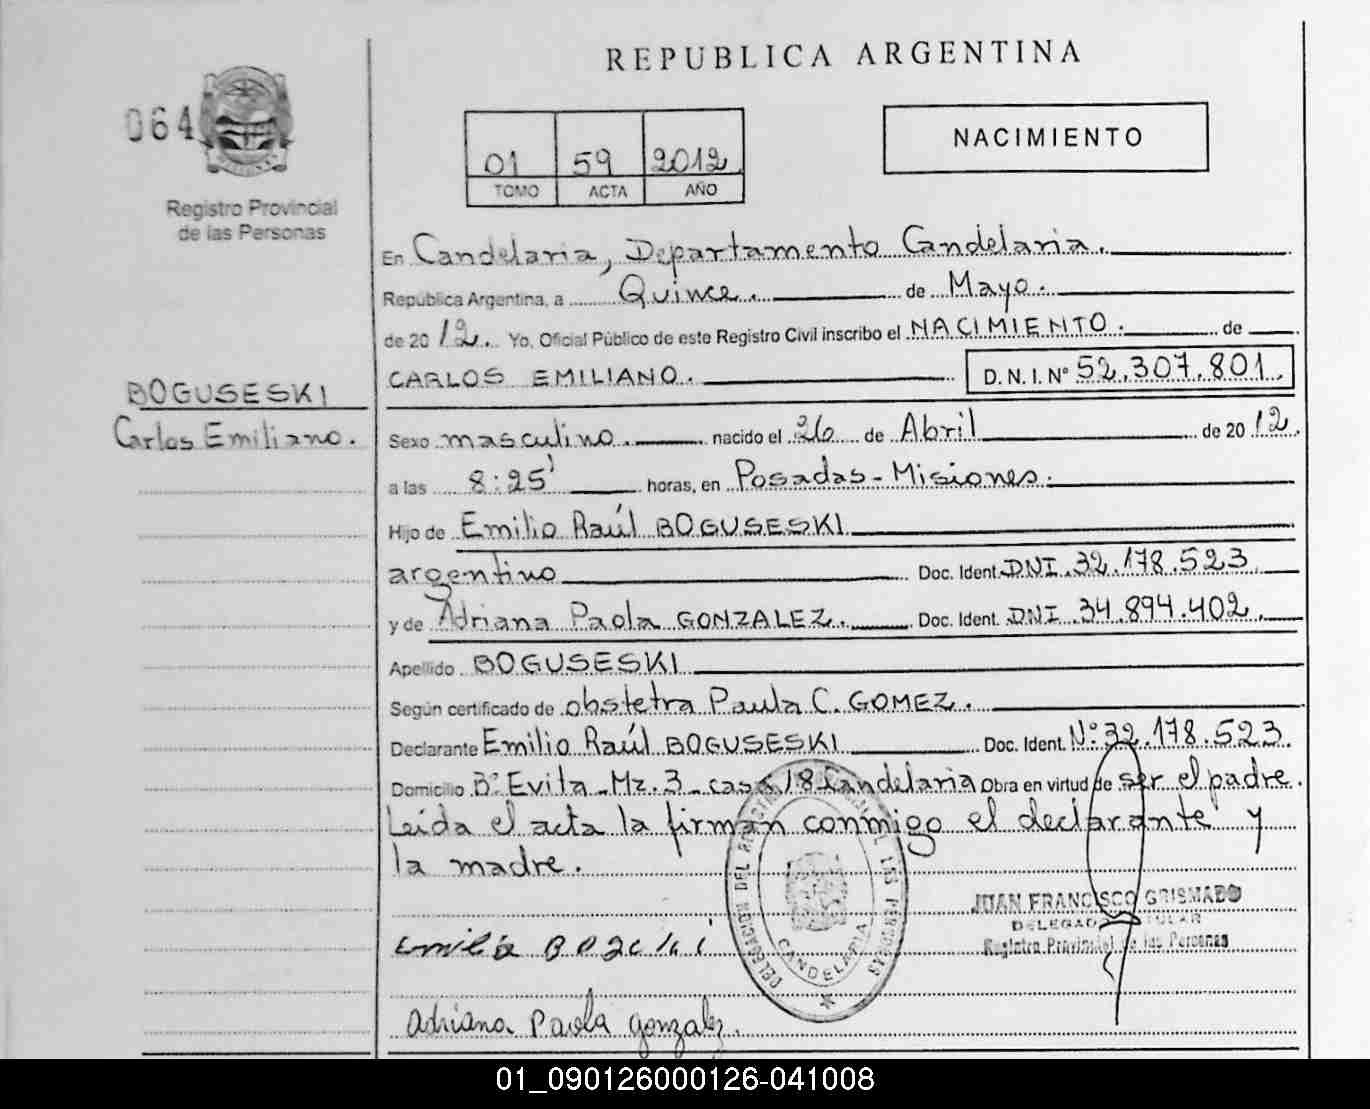 REPUBLICA ARGENTINA
064
01 59 2012
TOMO ACTA AÑO
NACIMIENTO
Registro Provincial
de las Personas
En Candelaria, Departamento Candelaria.
República Argentina, a Quince. de Mayo.
de 2012. Yo, Oficial Público de este Registro Civil inscribo el NACIMIENTO. de
CARLOS EMILIANO. D.N.I. N° 52.307.801.
BOGUSESKI
Carlos Emiliano.
Sexo masculino. nacido el 26 de Abril de 2012.
a las 8:25' horas, en Posadas - Misiones.
Hijo de Emilio Raúl BOGUSESKI
argentino Doc. Ident. DNI. 32.178.523
y de Adriana Paola GONZALEZ. Doc. Ident. DNI. 34.894.402.
Apellido BOGUSESKI
Según certificado de obstetra Paula C. GOMEZ.
Declarante Emilio Raúl BOGUSESKI Doc. Ident. N° 32.178.523
Domicilio B° Evita - Mz. 3 - casa 18 Candelaria Obra en virtud de ser el padre.
Leída el acta la firman conmigo el declarante y
la madre.
DELEGACION DEL REGISTRO PROVINCIAL DE LAS PERSONAS
CANDELARIA
JUAN FRANCISCO GRISMADO
DELEGADO TITULAR
Registro Provincial de las Personas
Adriana Paola Gonzalez.
01_090126000126-041008